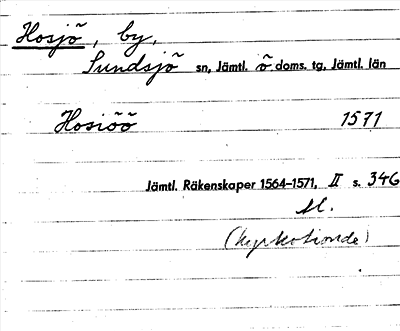 Hosjö, by,
Sundsjö sn, Jämtl. ö doms. tg, Jämtl. län
Hosiöö 1571
Jämtl. Räkenskaper 1564–1571, II s. 346
(kyrkotionde)